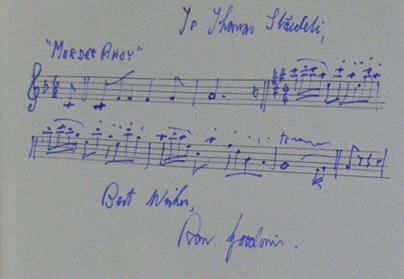 To Thomas Städeli,
"MURDER AHOY"
Best Wishes,
Ron Goodwin.